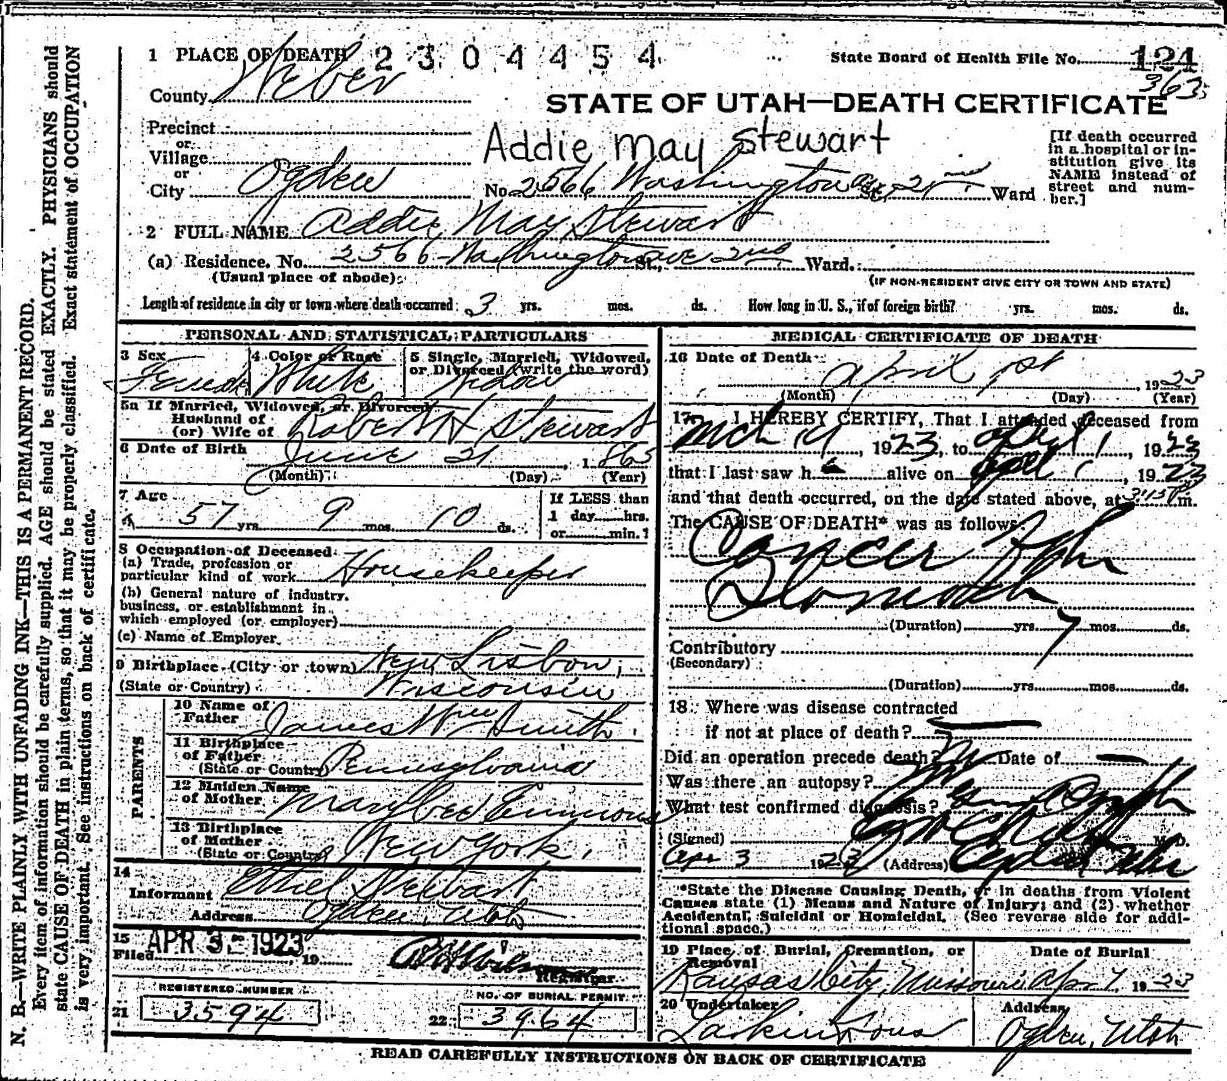 1 PLACE OF DEATH 2304454 State Board of Health File No. 124
363
County Weber
STATE OF UTAH—DEATH CERTIFICATE
Precinct
or
Village
or
City Ogden
Addie May Stewart
No. 2566 Washington Ave St., 2nd Ward
[If death occurred
in a hospital or in-
stitution give its
NAME instead of
street and num-
ber.]
2 FULL NAME Addie May Stewart
(a) Residence. No. 2566 Washington ave St., 2nd Ward.
(Usual place of abode) (IF NON-RESIDENT GIVE CITY OR TOWN AND STATE)
Length of residence in city or town where death occurred 3 yrs. mos. ds. How long in U. S., if of foreign birth? yrs. mos. ds.
PERSONAL AND STATISTICAL PARTICULARS
3 Sex 4 Color or Race 5 Single, Married, Widowed,
or Divorced (write the word)
Female White Widow
5a If Married, Widowed, or Divorced
Husband of
(or) Wife of Robert H Stewart
6 Date of Birth June 21, 1865
(Month) (Day) (Year)
7 Age If LESS than
57 yrs. 9 mos. 10 ds. 1 day......hrs.
or......min.?
8 Occupation of Deceased
(a) Trade, profession or
particular kind of work Housekeeper
(b) General nature of industry,
business, or establishment in
which employed (or employer)
(c) Name of Employer
9 Birthplace (City or town) New Lisbon,
(State or Country) Wisconsin
PARENTS
10 Name of
Father James Wm Smith
11 Birthplace
of Father
(State or Country) Pennsylvania
12 Maiden Name
of Mother Mary Emmons
13 Birthplace
of Mother
(State or Country) New York,
14
Informant Ethel Stewart
Address Ogden, Utah
15
Filed APR 3 - 1923 19
Registrar
REGISTERED NUMBER NO. OF BURIAL PERMIT
21 3594 22 3964
MEDICAL CERTIFICATE OF DEATH
16 Date of Death
April 1st, 1923
(Month) (Day) (Year)
17 I HEREBY CERTIFY, That I attended deceased from
Mch, 1923, to April 1, 1923
that I last saw h alive on April 1, 1923
and that death occurred, on the date stated above, at m.
The CAUSE OF DEATH* was as follows:
Cancer of the
Stomach
(Duration) yrs. 7 mos. ds.
Contributory
(Secondary)
(Duration) yrs. mos. ds.
18. Where was disease contracted
if not at place of death?
Did an operation precede death? No Date of
Was there an autopsy?
What test confirmed diagnosis?
(Signed) M.D.
Apr 3 1923 (Address) Ogden Utah
*State the Disease Causing Death, or in deaths from Violent
Causes state (1) Means and Nature of Injury; and (2) whether
Accidental, Suicidal or Homicidal. (See reverse side for addi-
tional space.)
19 Place of Burial, Cremation, or Date of Burial
Removal
Kansas City, Missouri Apr. 7, 1923
20 Undertaker Address
Larkin & Sons Ogden, Utah
READ CAREFULLY INSTRUCTIONS ON BACK OF CERTIFICATE
N. B.—WRITE PLAINLY WITH UNFADING INK—THIS IS A PERMANENT RECORD.
Every item of information should be carefully supplied. AGE should be stated EXACTLY. PHYSICIANS should
state CAUSE OF DEATH in plain terms, so that it may be properly classified. Exact statement of OCCUPATION
is very important. See instructions on back of certificate.